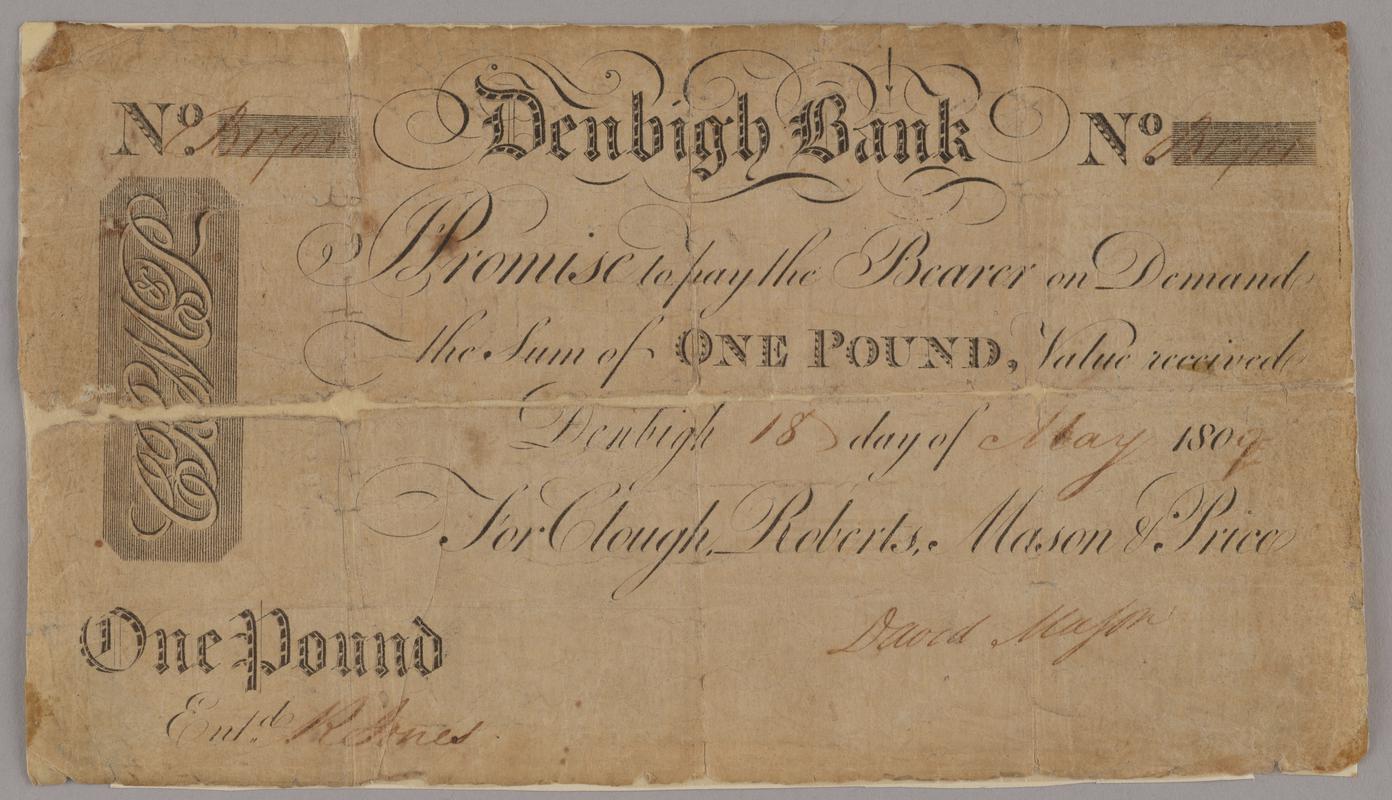 Denbigh Bank
No.
No.
I Promise to pay the Bearer on Demand
the Sum of ONE POUND, Value received
Denbigh 18 day of May 1809
For Clough, Roberts, Mason & Price
David Mason
One Pound
Entd. R Jones